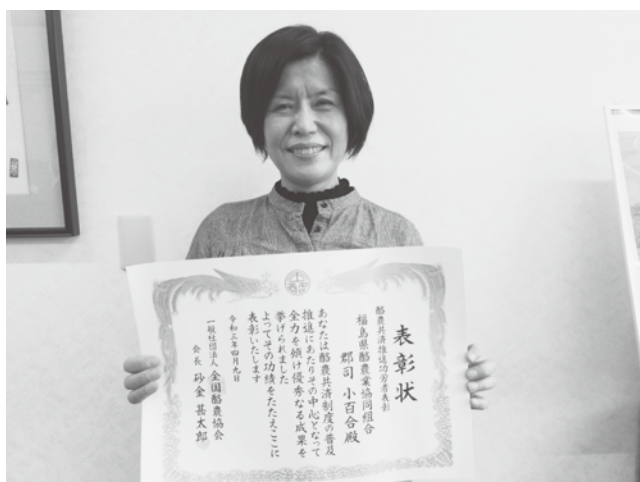 表彰状
酪農共済推進功労者表彰
福島県酪農業協同組合
郡司 小百合殿
あなたは酪農共済制度の普及
推進にあたりその中心となって
全力を傾け優秀なる成果を
挙げられました
よってその功績をたたえここに
表彰いたします
令和三年四月九日
一般社団法人 全国酪農協会
会長 砂金 甚太郎